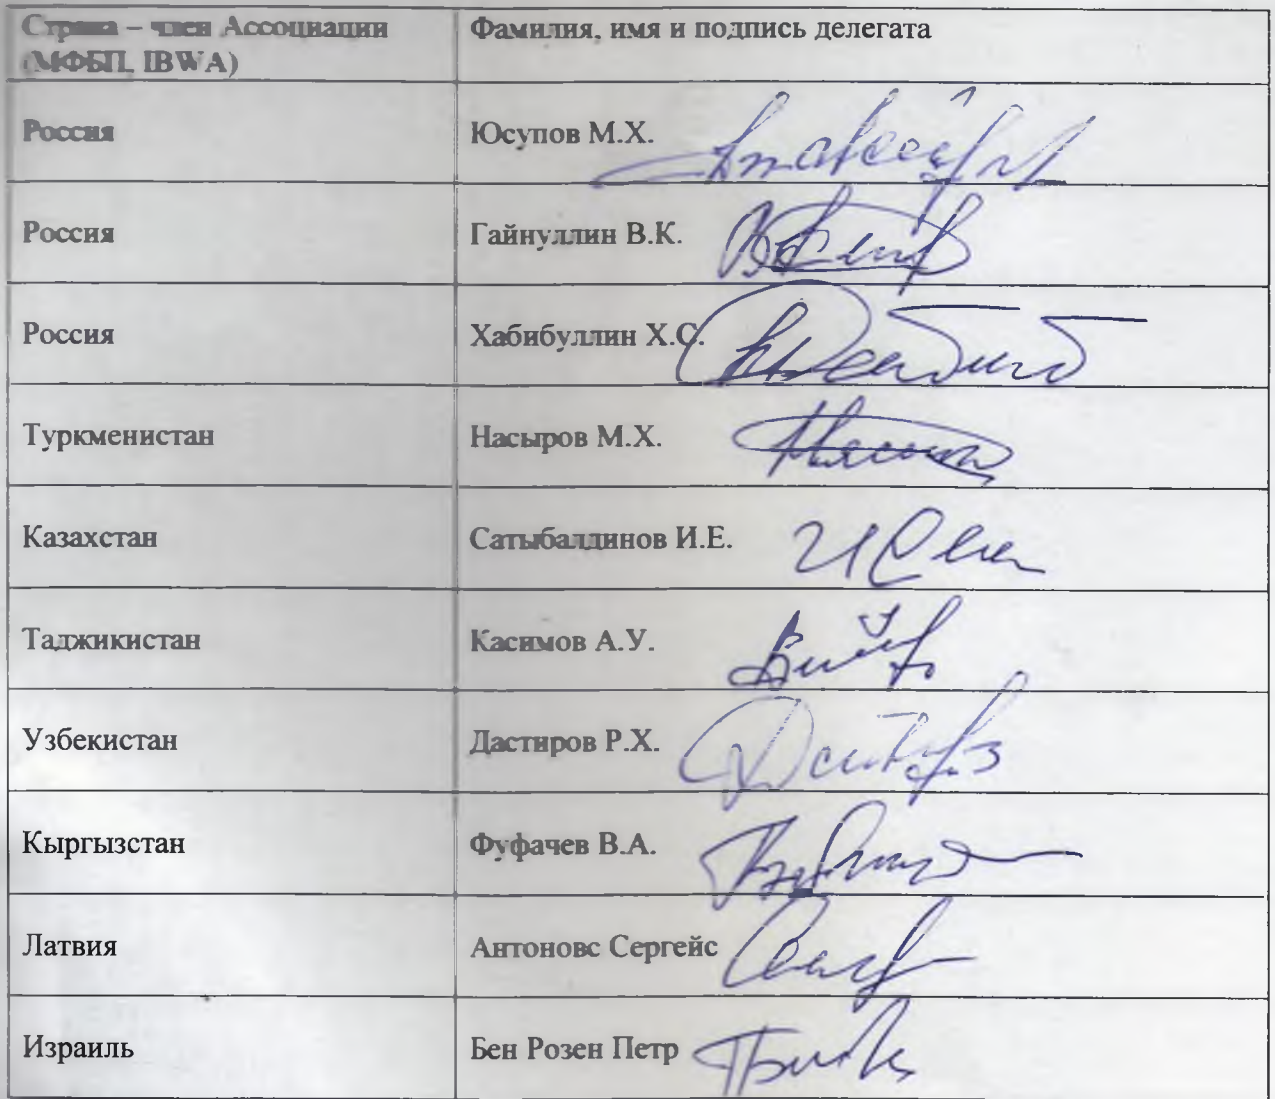 Страна – член Ассоциации Фамилия, имя и подпись делегата
(МФБП, IBWA)
Россия Юсупов М.Х.
Россия Гайнуллин В.К.
Россия Хабибуллин Х.С.
Туркменистан Насыров М.Х.
Казахстан Сатыбалдинов И.Е.
Таджикистан Касимов А.У.
Узбекистан Дастиров Р.Х.
Кыргызстан Фуфачев В.А.
Латвия Антоновс Сергейс
Израиль Бен Розен Петр